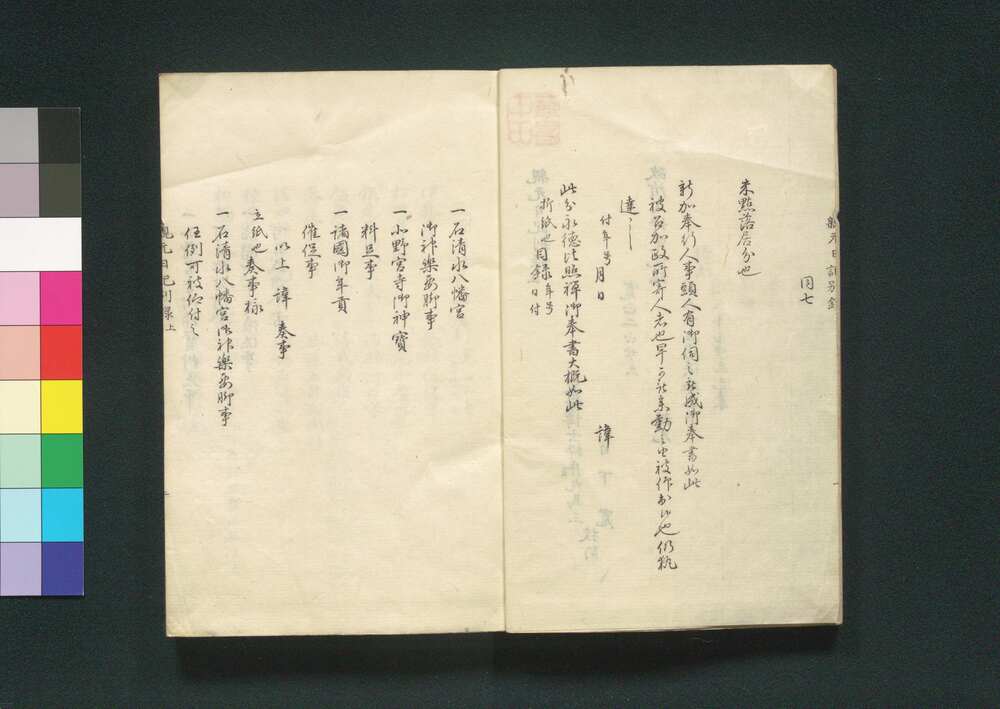 同七
朱點落居分也
新加奉行人事頭人有御伺之被成御奉書如此
被召加政所寄人者也早可被参勤之由被仰出候也仍執
達
付年号 月 日
諱
此分永徳比照禅御奉書大概如此
折紙也目録日付
一石清水八幡宮
御神樂要脚事
一小野宮寺御神寶
料足事
一諸國御年貢
催促事
以上 諱 奏事
立紙也奏事様
一石清水八幡宮御神樂要脚事
任例可被仰付之
親元日記別録上